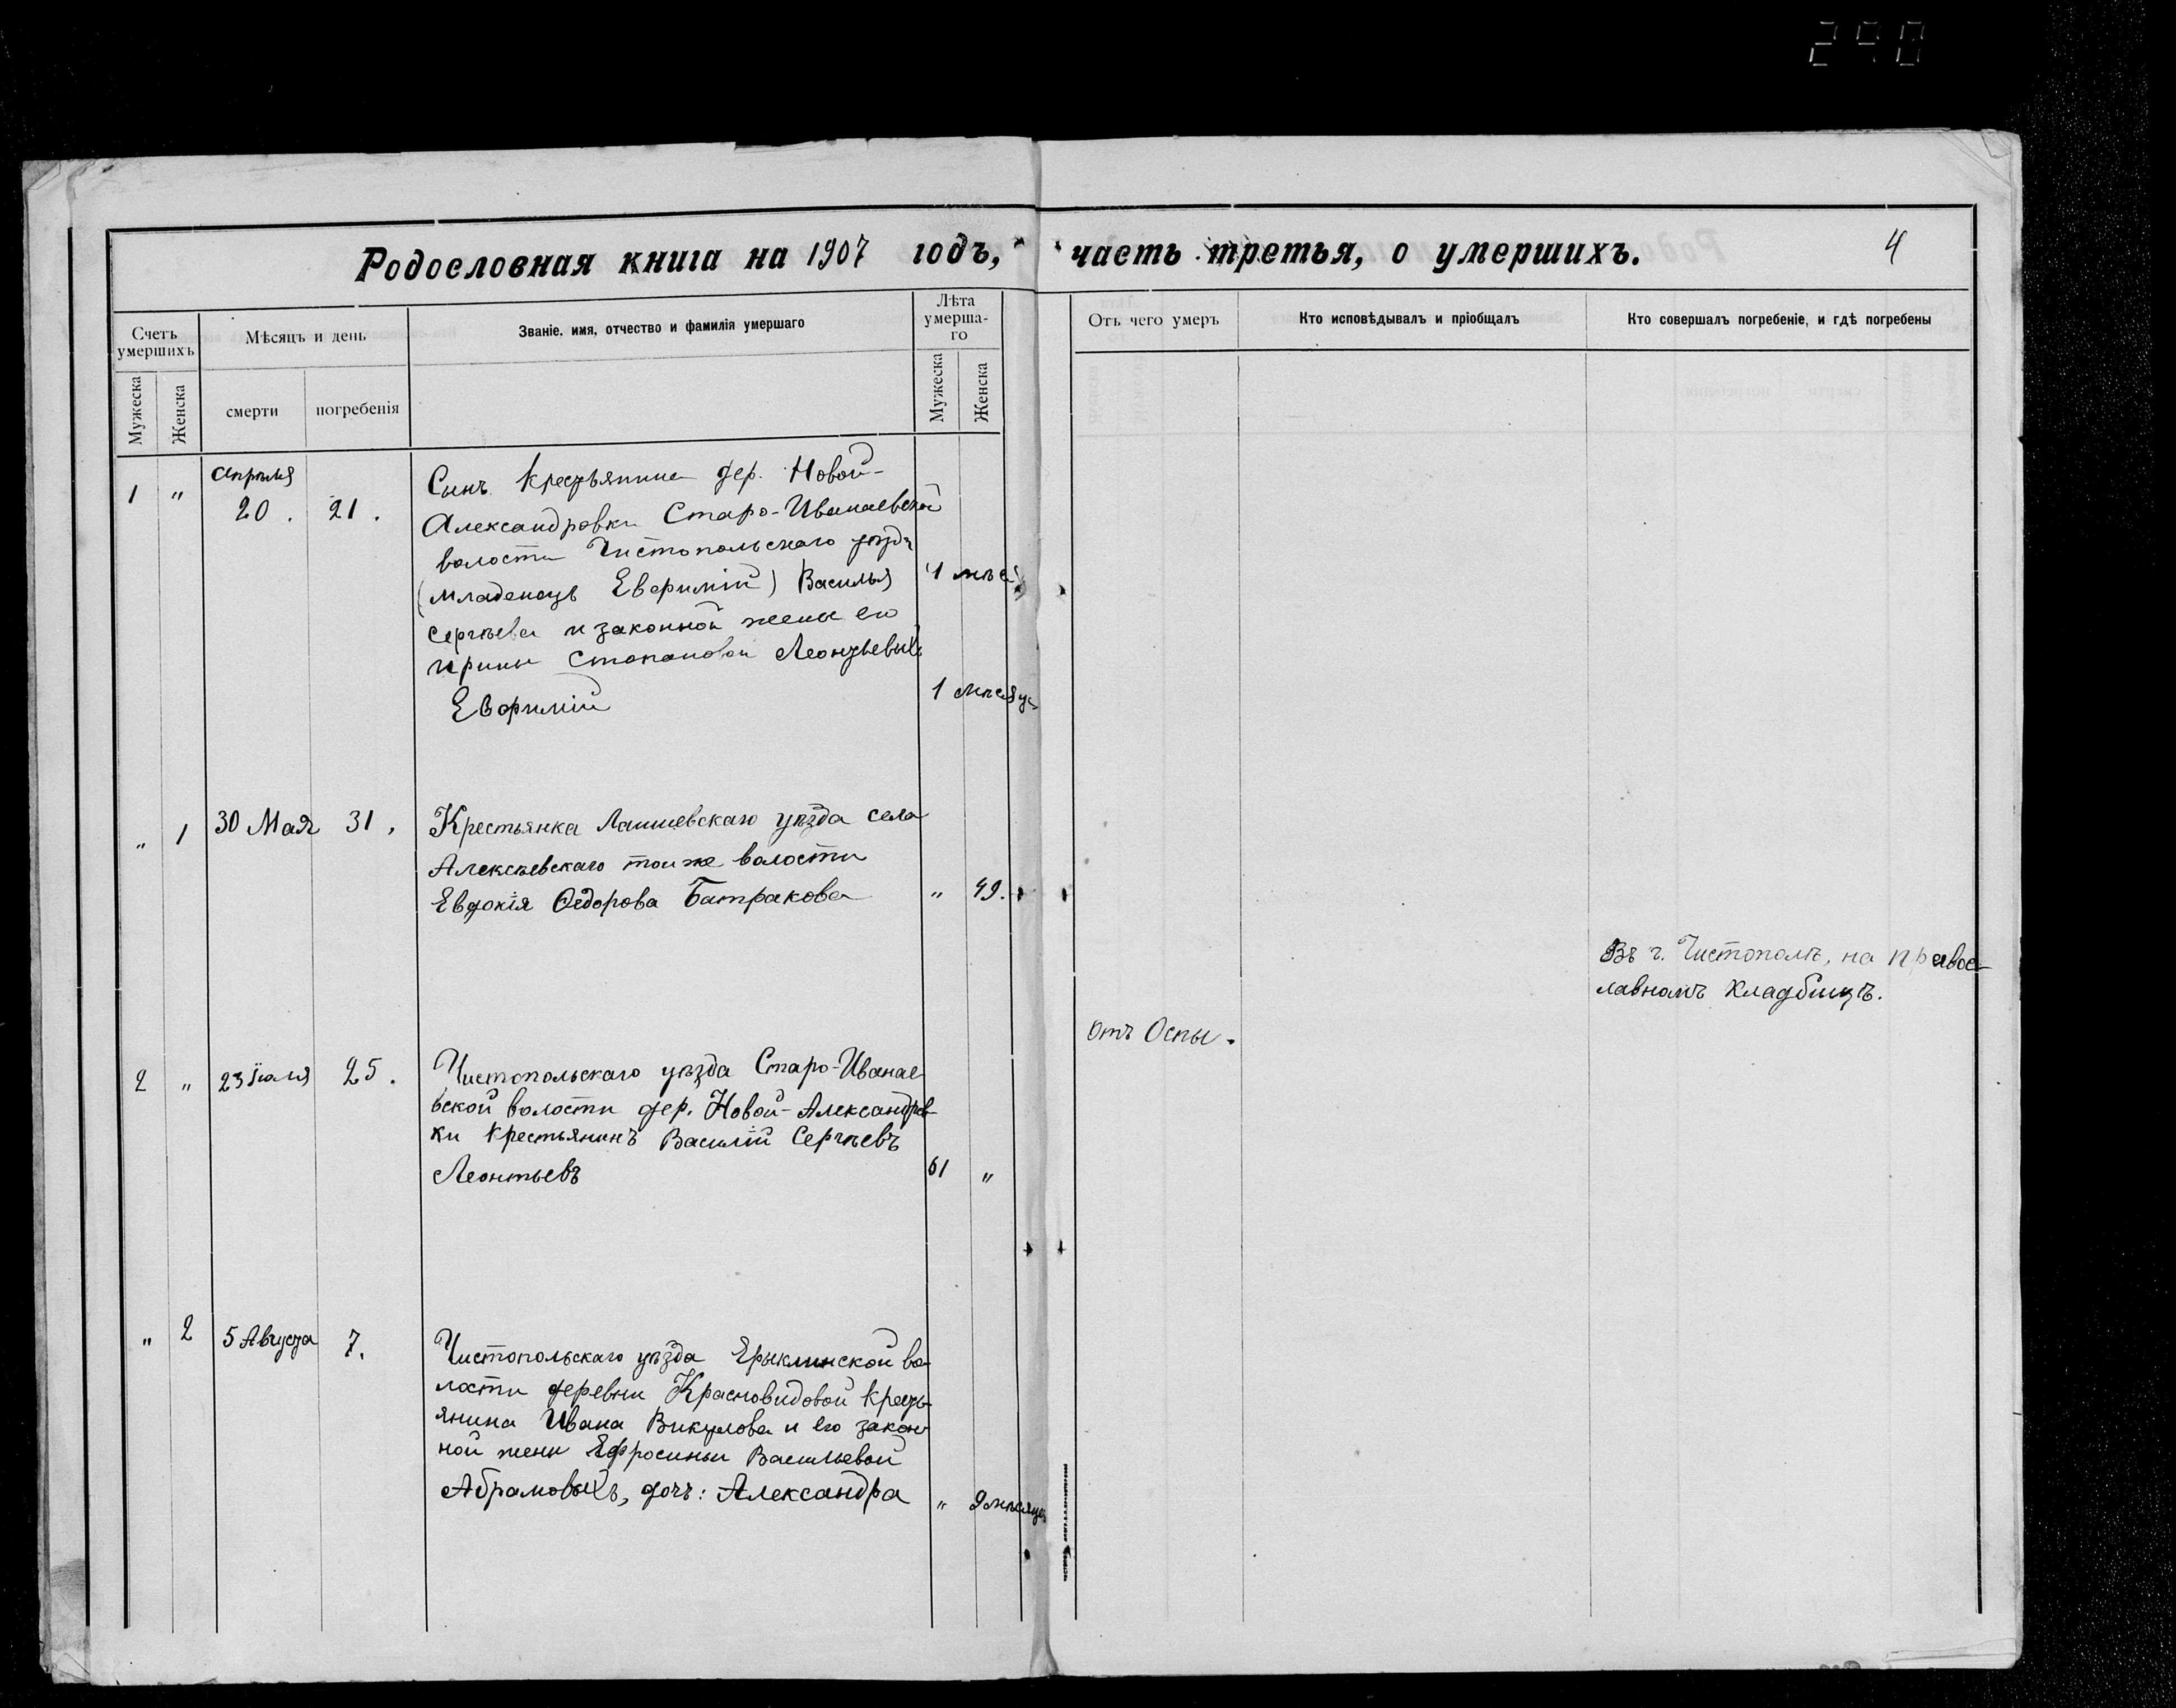 290
Родословная книга на 1907 годъ, часть третья, о умершихъ.
4
Счетъ умершихъ
Мѣсяцъ и день
Званіе, имя, отчество и фамилія умершаго
Лѣта умерша-го
Отъ чего умеръ
Кто исповѣдывалъ и пріобщалъ
Кто совершалъ погребеніе, и гдѣ погребены
Мужеска
Женска
смерти
погребенія
Мужеска
Женска
1 " Апрѣля
20. 21.
Сынъ крестьянина дер. Новой-
Александровки Старо-Иванаевской
волости Чистопольскаго уѣзда
(младенецъ Евфимій) Василья 1 мѣся
Сергѣева и законной жены его
Ирины Степановой Леонтьевыхъ
Евфимій 1 мѣсяцъ
" 1 30 Мая 31.
Крестьянка Лаишевскаго уѣзда села
Алексѣевскаго той же волости
Евдокія Ѳедорова Батракова " 49.
2 " 23 Іюля 25.
Чистопольскаго уѣзда Старо-Иванае
вской волости дер. Новой-Александров-
ки крестьянинъ Василій Сергѣевъ
Леонтьевъ 61 "
отъ Оспы.
Въ г. Чистополѣ, на правос-
лавномъ кладбищѣ.
" 2 5 Августа 7.
Чистопольскаго уѣзда Ерыклинской во-
лости деревни Красновидовой кресть-
янина Ивана Викулова и его закон-
ной жены Ефросиньи Васильевой
Абрамовыхъ, дочь: Александра " 9 мѣсяцъ